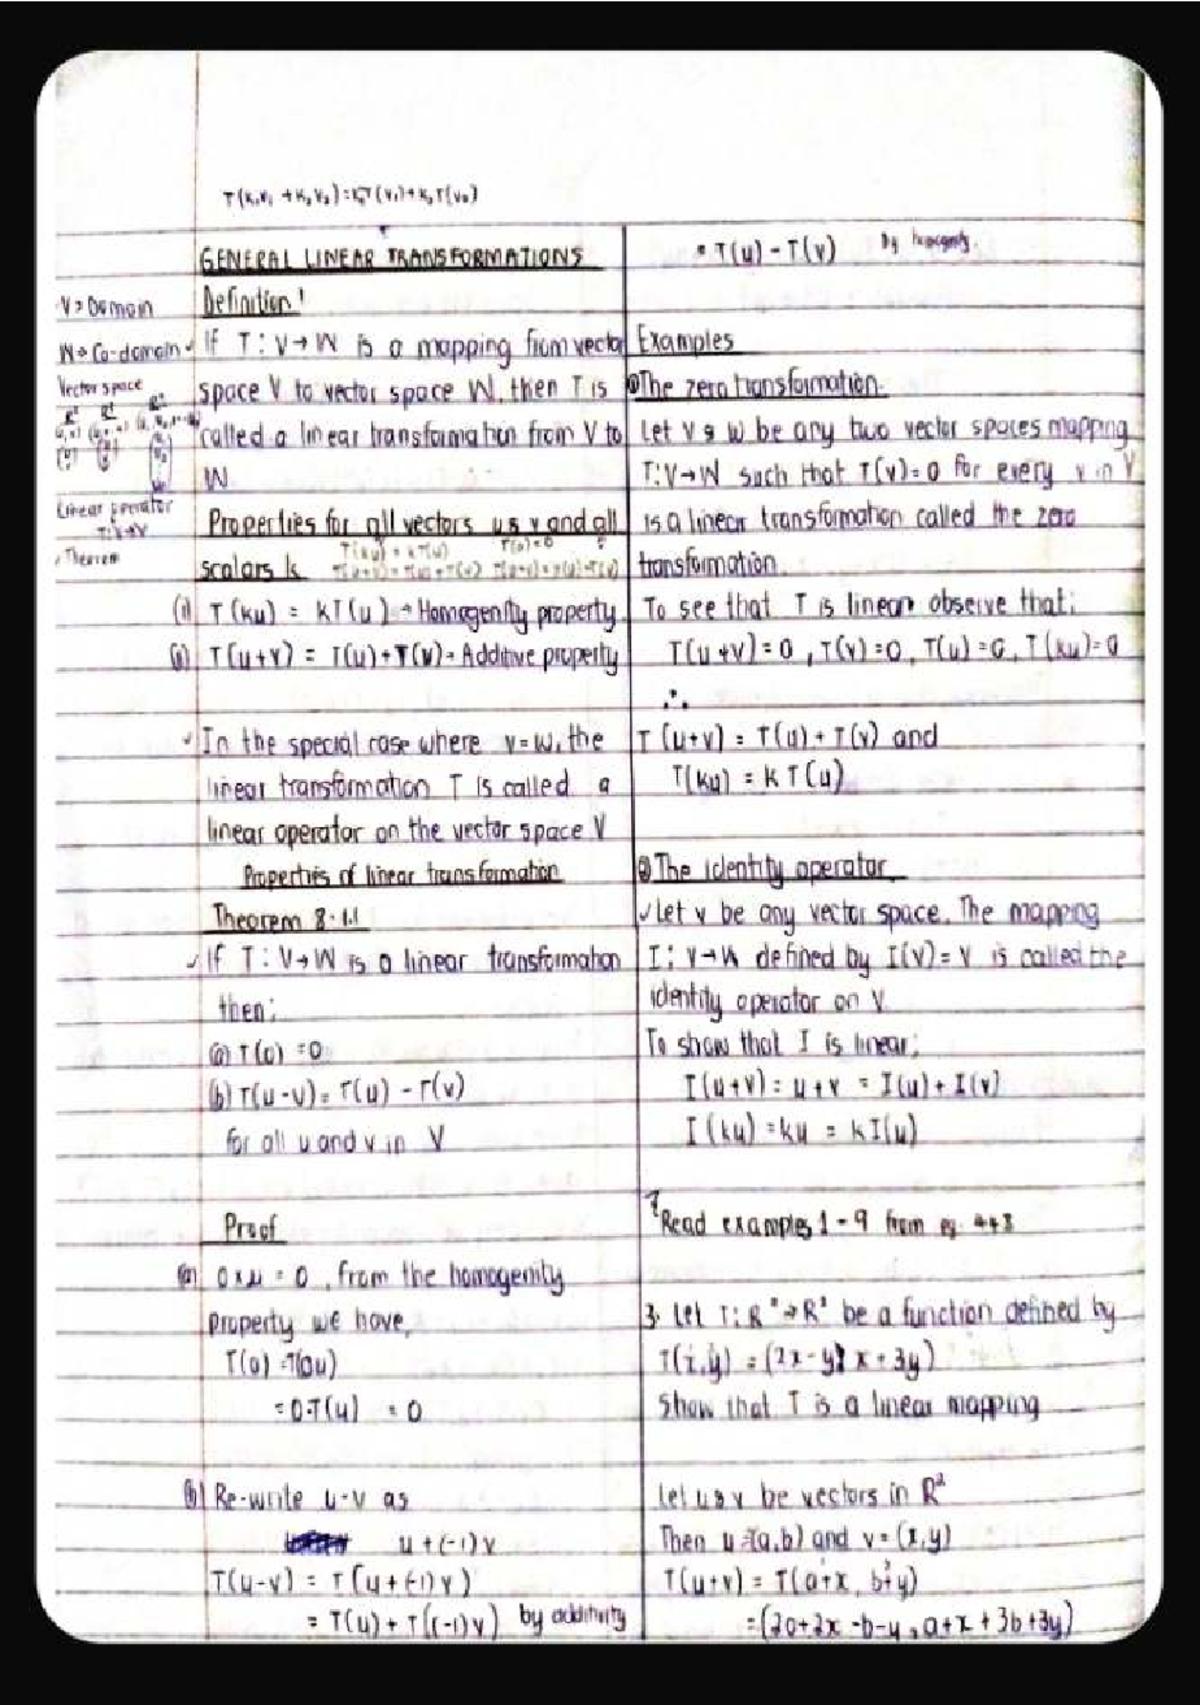 T(k₁v₁ + k₂v₂) = k₁T(v₁) + k₂T(v₂)
GENERAL LINEAR TRANSFORMATIONS
V → Domain
Definition!
W → Co-domain
If T : V → W is a mapping from vector
Vector space
space V to vector space W, then T is
called a linear transformation from V to
W
Linear operator
T: V → V
Properties for all vectors u & v and all
Theorem
T(ku) = kT(u) T(0) = 0
scalars k T(u+v) = T(u) + T(v) T(u-v) = T(u) - T(v)
(i) T(ku) = kT(u) → Homogenity property
(ii) T(u+v) = T(u) + T(v) - Additive property
In the special case where v = w, the
linear transformation T is called a
linear operator on the vector space V
Properties of linear transformation
Theorem 8.1.1
If T : V → W is a linear transformation
then;
(a) T(0) = 0
(b) T(u-v) = T(u) - T(v)
for all u and v in V
Proof
(a) 0 × u = 0, from the homogenity
property we have,
T(0) = T(0u)
= 0.T(u) = 0
(b) Re-write u-v as
u + (-1)v
T(u-v) = T(u + (-1)v)
= T(u) + T((-1)v) by additivity
= T(u) - T(v) By homogenity
Examples
① The zero transformation
Let V & W be any two vector spaces mapping
T: V → W such that T(v) = 0 for every v in V
is a linear transformation called the zero
transformation.
To see that T is linear observe that;
T(u+v) = 0, T(v) = 0, T(u) = 0, T(ku) = 0
∴
T(u+v) = T(u) + T(v) and
T(ku) = kT(u)
② The identity operator
Let v be any vector space. The mapping
I: V → V defined by I(v) = v is called the
identity operator on V
To show that I is linear;
I(u+v) = u+v = I(u) + I(v)
I(ku) = ku = kI(u)
Read examples 1 - 9 from pg. 448
3. Let T: R² → R² be a function defined by
T(x,y) = (2x-y, x+3y)
Show that T is a linear mapping
Let u & v be vectors in R²
Then u = (a,b) and v = (x,y)
T(u+v) = T(a+x, b+y)
= (2a+2x -b-y, a+x + 3b+3y)